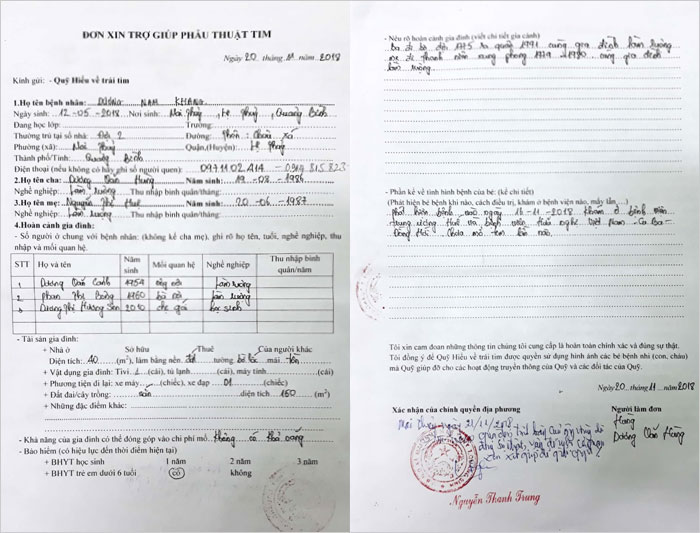 ĐƠN XIN TRỢ GIÚP PHẪU THUẬT TIM
Ngày 20 tháng 11 năm 2018
Kính gửi: - Quỹ Hiểu về trái tim
1.Họ tên bệnh nhân: DƯƠNG NAM KHANG
Ngày sinh: 12-05-2018 Nơi sinh: Mai Thủy, Lệ Thủy, Quảng Bình
Đang học lớp: Trường:
Thường trú tại số nhà: Đội 2 Đường: Thôn: Châu Xá
Phường (xã): Mai Thủy Quận,(Huyện): Lệ Thủy
Thành phố/Tỉnh: Quảng Bình
Điện thoại (nếu không có hãy ghi số người quen): 0971102414 - 0919 315 823
2.Họ tên cha: Dương Văn Năm sinh: 19-08-1986
Nghề nghiệp: Làm ruộng Thu nhập bình quân/tháng:
3.Họ tên mẹ: Nguyễn Thị Huế Năm sinh: 20-06-1987
Nghề nghiệp: Làm ruộng Thu nhập bình quân/tháng:
4.Hoàn cảnh gia đình:
- Số người ở chung với bệnh nhân: (không kể cha mẹ), ghi rõ họ tên, tuổi, nghề nghiệp, thu
nhập và mối quan hệ.
STT Họ và tên Năm sinh Mối quan hệ Nghề nghiệp Thu nhập bình quân/năm
1 Dương Văn 1954 ông nội Làm ruộng
2 Phan Thị 1960 bà nội Làm ruộng
3 Dương Thị Hương Sen 2010 chị gái học sinh
- Tài sản gia đình:
+ Nhà ở Sở hữu Thuê Của người khác
Diện tích: 40 (m²), làm bằng nền đất tường mái tôn
+ Vật dụng gia đình: Tivi 1 (cái), tủ lạnh (cái), máy tính (cái)
+ Phương tiện đi lại: xe máy (chiếc), xe đạp 01 (chiếc)
+ Đất đai/cây trồng: diện tích 150 (m²)
+ Những đặc điểm khác:
- Khả năng của gia đình có thể đóng góp vào chi phí mổ. Không có khả năng
- Bảo hiểm (có hiệu lực đến thời điểm hiện tại)
+ BHYT học sinh 1 năm 2 năm 3 năm
+ BHYT trẻ em dưới 6 tuổi có không
- Nêu rõ hoàn cảnh gia đình (viết chi tiết gia cảnh)
Ba đi bộ đội 1975 ra quân 1991 cùng gia đình làm ruộng
mẹ đi thanh niên xung phong 1979 - 1980 cùng gia đình
làm ruộng
- Phần kể về tình hình bệnh của bé: (kể chi tiết)
(Phát hiện bệnh khi nào, cách điều trị, khám ở bệnh viện nào, mấy lần,...)
phát hiện bệnh vào ngày 16-11-2018 khám ở bệnh viện
trung ương Huế và bệnh viện hữu nghị việt Nam - Cu Ba -
Đồng Hới. Chưa mổ tim lần nào.
Tôi xin cam đoan những thông tin chúng tôi cung cấp là hoàn toàn chính xác và đúng sự thật.
Tôi đồng ý để Quỹ Hiểu về trái tim được quyền sử dụng hình ảnh các bé bệnh nhi (con, cháu)
mà Quỹ giúp đỡ cho các hoạt động truyền thông của Quỹ và các đối tác của Quỹ.
Ngày 20 tháng 11 năm 2018
Xác nhận của chính quyền địa phương Người làm đơn
Mai Thủy, ngày 21/11/2018
Dương Văn
Nguyễn Thanh Trung